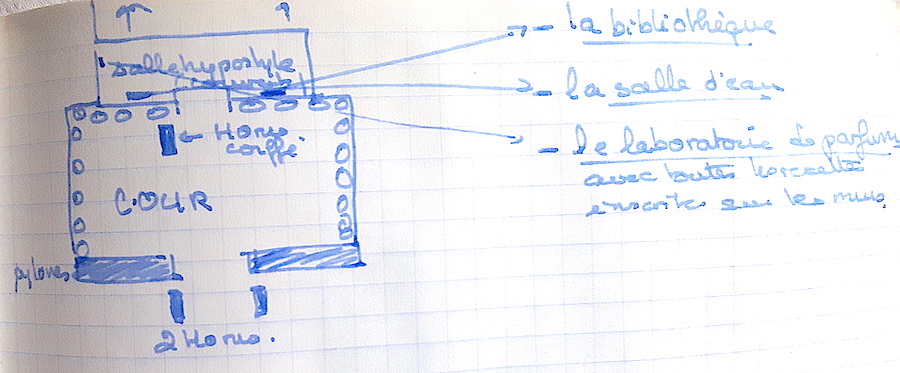 - la bibliothèque
salle hypostyle
couverte
- la salle d'eau
← Horus
coiffé.
- le laboratoire de parfums
avec toutes les recettes
inscrites sur les murs.
COUR
pylones
2 Horus.